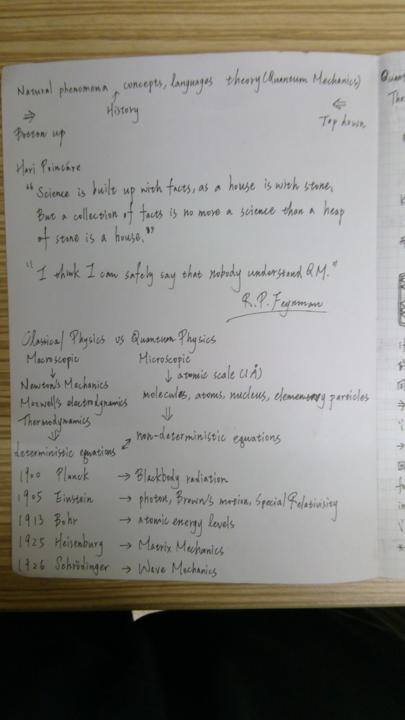 Natural phenomena concepts, languages theory (Quantum Mechanics)
⇒ ↑ History ⇐
Botton up Top down
Hari Poincáre
"Science is built up with facts, as a house is with stone,
But a collection of facts is no more a science than a heap
of stone is a house."
"I think I can safely say that nobody understand QM."
R.P. Feynman
Classical Physics vs Quantum Physics
Macroscopic Microscopic
↓ ↓ atomic scale (1Å)
Newton's Mechanics
Maxwell's electrodynamics molecules, atoms, nucleus, elementary particles
Thermodynamics
⇓ ⇓
deterministic equations ↔ non-deterministic equations
1900 Planck → Blackbody radiation
1905 Einstein → photon, Brown's motion, Special Relativisity
1913 Bohr → atomic energy levels
1925 Heisenburg → Matrix Mechanics
1926 Schrödinger → Wave Mechanics
Quant
The